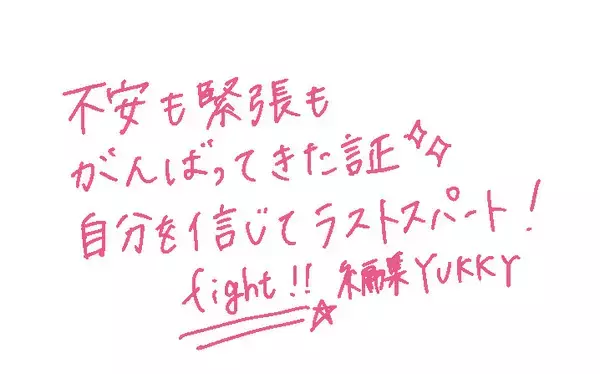 不安も緊張も
がんばってきた証
自分を信じてラストスパート!
fight!! 編集YUKKY